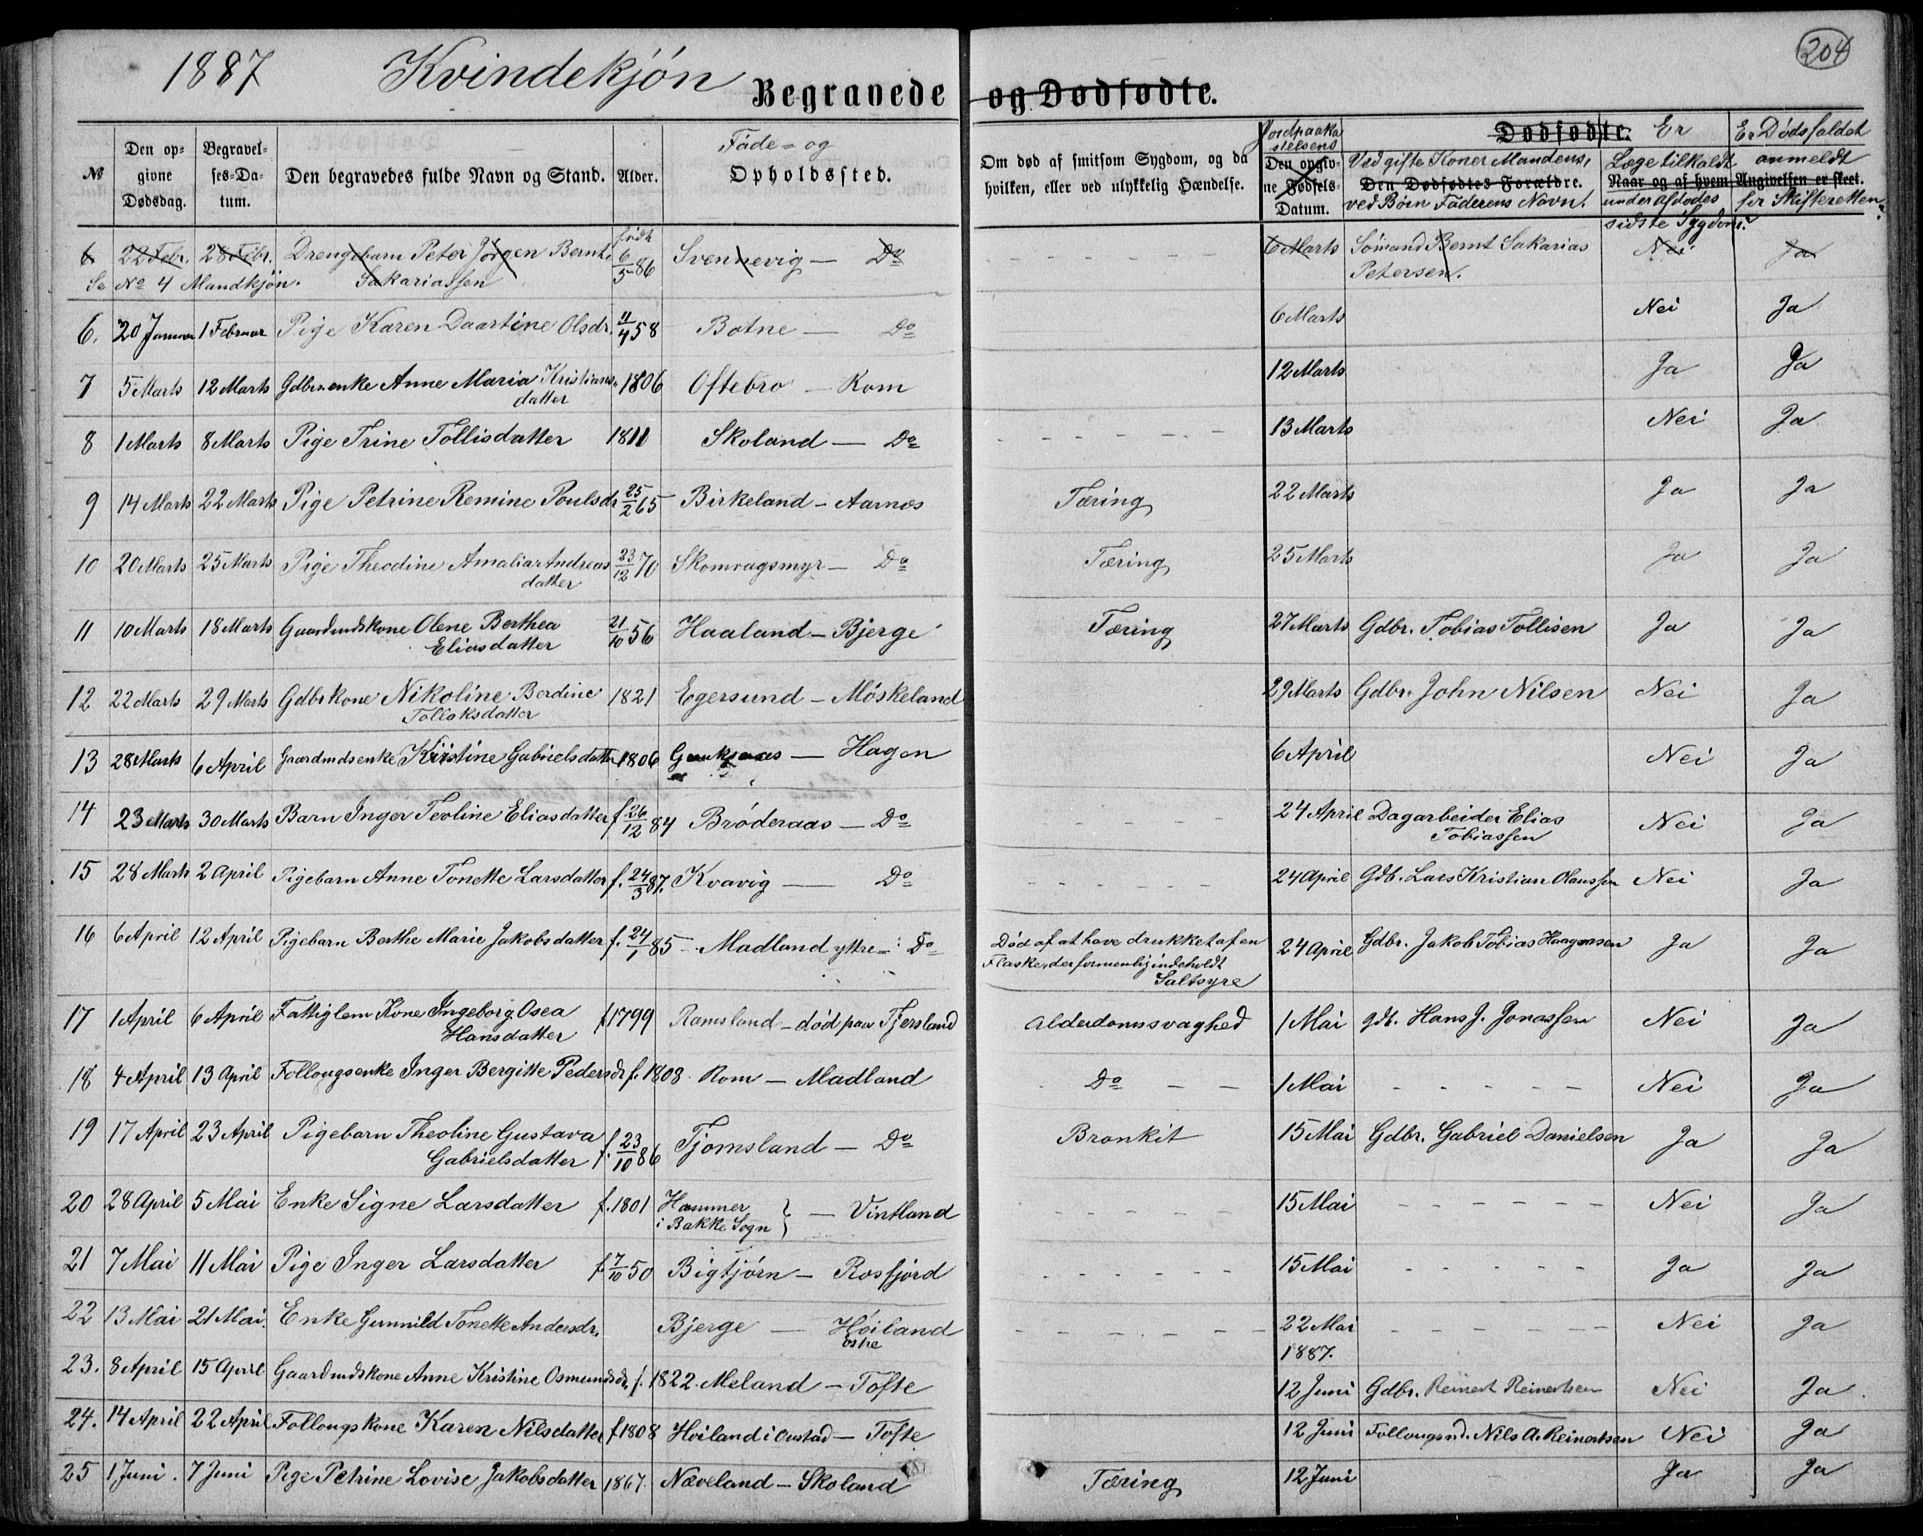 1887 Kvindekjön Begravede og Dødfødte. 204
№ Den opgivne Dødsdag. Begravelses-Datum. Den begravedes fulde Navn og Stand. Alder. Föde- og Opholdssted. Om død af smitsom Sygdom, og da hvilken, eller ved ulykkelig Hændelse. Jordpaakastelsens Den opgivne Fødsels-Datum. Ved gifte Koner Mandens, ved Börn Faderens Navn. Den Dødfødtes Forældre. Dødfødte. Er Læge tilkaldt under afdødes sidste Sygdom? Naar og af hvem Er Dødsfaldet anmeldt for Skifteretten? Angivelsen er skeet.
6 22 Febr. 28 Febr. Drengebarn Peter Jörgen Bernt Sakariassen födt 6/5 86 Svennevig — Do 6 Marts Sömand Bernt Sakarias Petersen. Nei Ja
Se No 4 Mandkjön.
6. 20 Januar 1 Februar Pige Karen Daartine Olsdr. 11/4 58 Botne — Do 6 Marts Nei Ja
7 5 Marts 12 Marts Gdbr.enke Anne Maria Kristiansdatter 1806 Oftebro — Rom 12 Marts Ja Ja
8 1 Marts 8 Marts Pige Trine Tollisdatter 1811 Skoland — Do 13 Marts Nei Ja
9 14 Marts 22 Marts Pige Petrine Remine Poulsdr 25/2 65 Birkeland — Aarnes Tæring 22 Marts Ja Ja
10 20 Marts 25 Marts Pige Theodine Amalia Andreasdatter 23/12 70 Skomragsmyr — Do Tæring 25 Marts Ja Ja
11 10 Marts 18 Marts Gaardmdskone Olene Berthea Eliasdatter 21/10 56 Haaland — Bjerge Tæring 27 Marts Gdbr. Tobias Tollisen Ja Ja
12 22 Marts 29 Marts Gdbrkone Nikoline Berdine Tollaksdatter 1821 Egersund — Möskeland 29 Marts Gdbr. John Nilsen Nei Ja
13 28 Marts 6 April Gaardmdsenke Kristine Gabrielsdatter 1806 — Hagen 6 April Nei Ja
14 23 Marts 30 Marts Barn Inger Teoline Eliasdatter f. 26/12 84 Bröderaas — Do 24 April Dagarbeider Elias Tobiassen Nei Ja
15 28 Marts 2 April Pigebarn Anne Tonette Larsdatter f. 24/3 87. Kvavig — Do 24 April Gdb. Lars Kristian Olaussen Nei Ja
16 6 April 12 April Pigebarn Berthe Marie Jakobsdatter f. 24/1 85 Madland yttre — Do Död af at have drukket af en Flaske, der formentlig indeholdt Saltsyre 24 April Gdbr. Jakob Tobias Haagensen Ja Ja
17 1 April 6 April Fattiglem Kone Ingeborg Osea Hansdatter f 1799 Ramsland — död paa Tjersland Alderdomssvaghed 1 Mai gdb. Hans J. Jonassen Nei Ja
18 4 April 13 April Follougsenke Inger Bergitte Pedersdr f. 1808 Rom — Madland Do 1 Mai Nei Ja
19 17 April 23 April Pigebarn Theoline Gustava Gabrielsdatter f. 23/10 86 Tjomsland — Do Bronkit 15 Mai Gdbr. Gabriel Danielsen Ja Ja
20 28 April 5 Mai Enke Signe Larsdatter f. 1801 Hammer i Bakke Sogn } — Vintland 15 Mai Nei Ja
21 7 Mai 11 Mai Pige Inger Larsdatter f 7/10 50 Bigtjörn — Rosfjord 15 Mai Ja Ja
22 13 Mai 21 Mai. Enke Gunnild Tonette Andersdr. Bjerge — Höiland östre 22 Mai 1887. Nei Ja
23. 8 April 15 April Gaardmdskone Anne Kristine Osmundsdr. f. 1822. Meland — Tofte 12 Juni Gdbr. Reinert Reinertsen Nei Ja.
24. 14 April 22 April Follougskone Karen Nilsdatter f 1808 Höiland i Oustad — Tofte 12 Juni Follougsmd. Nils A. Reinertsen Nei Ja
25 1 Juni. 7 Juni Pige Petrine Lovise Jakobsdatter 1867. Næveland — Skoland Tæring 12 Juni Ja Ja